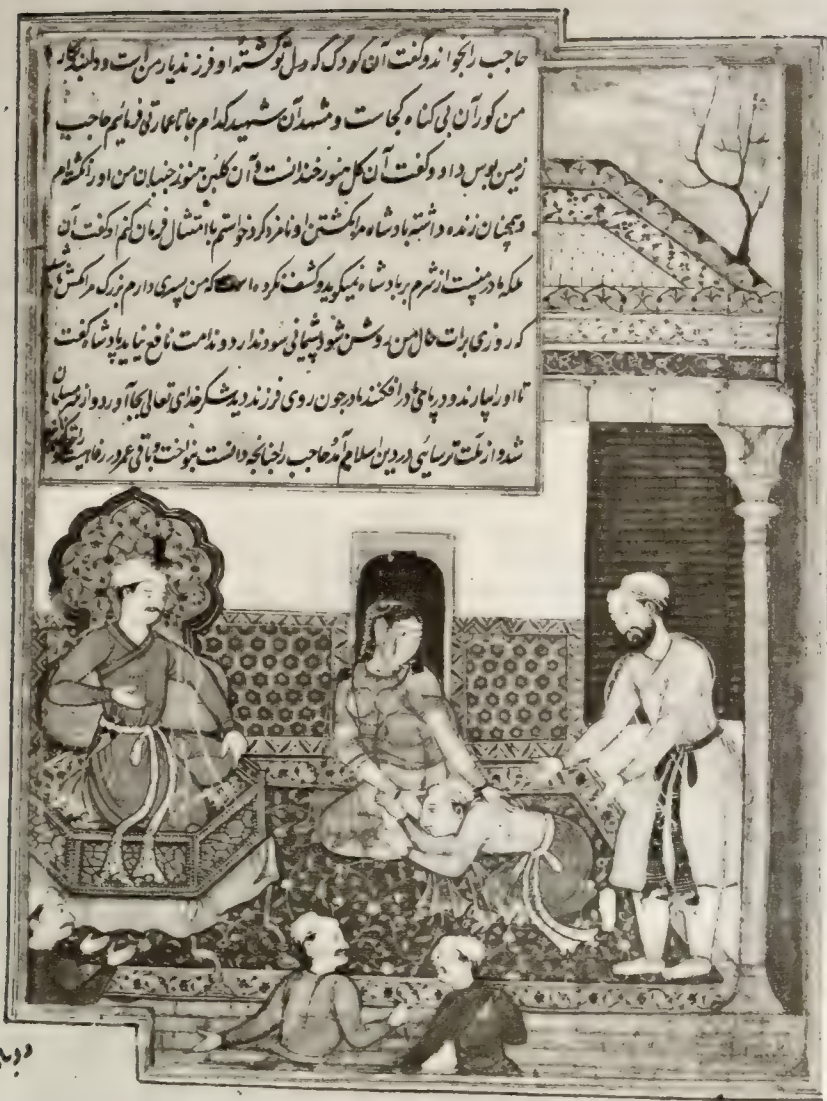 حاجب را بخواند و گفت آن کودک که دل تو کشته او فرزند یار من است و دلبند نگار
من گور آن بی گناه کجاست و مشهد آن شهید کدام جا تا عمارتی فرمائیم حاجب
زمین بوس داد و گفت آن گل هنوز خندانست و آن گلبن هنوز جنبان من او را نکشته‌ام
و همچنان زنده داشته پادشاه مرا بکشتن او نامزد کرد خواستم باامتثال فرمان کنم او گفت آن
ملکه مادر منست از شرم بر پادشاه نمیگوید و کشف نکرده که من پسری دارم بزرگ مرا مکش
که روزی برات حال من روشن شود پشیمانی سود ندارد و ندامت نافع نیاید پادشاه گفت
تا او را بیارند و در پای مادر افکنند مادر چون روی فرزند دید شکر خدای تعالی بجا آورد و از مسلمان
شد و از ملت ترسائی در دین اسلام آمد حاجب را چنانچه دانست بنواخت و باقی عمر در رفاهیت